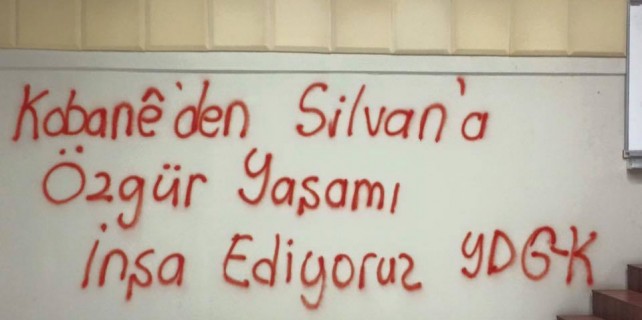 Kobanê'den Silvan'a
Özgür Yaşamı
İnşa Ediyoruz YDG-K